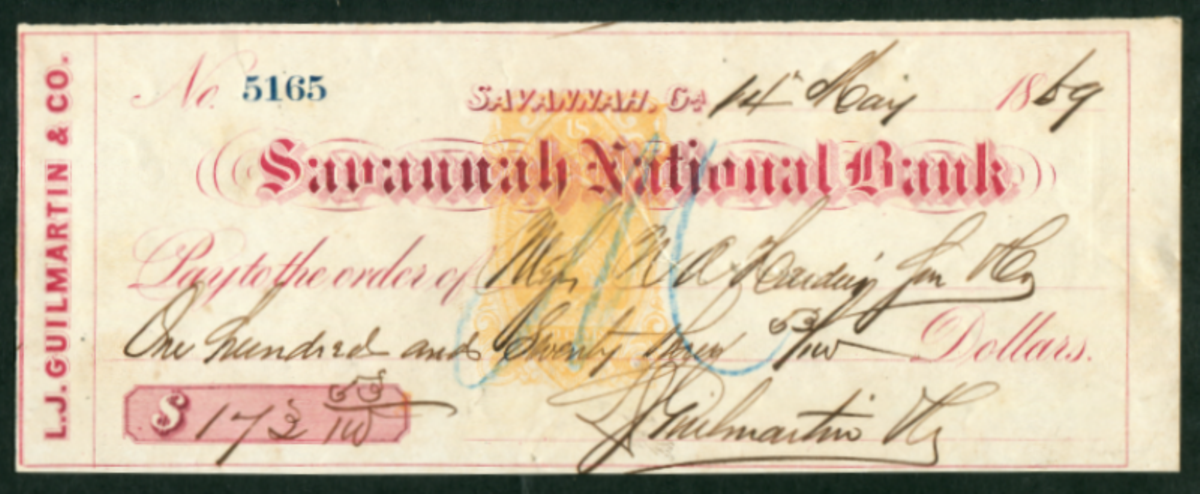 L.J. GUILMARTIN & CO.
No. 5165
SAVANNAH, GA 14 May 1869
Savannah National Bank
Pay to the order of N A Hardin Jun & Co
One hundred and Seventy three 53/100 Dollars.
$ 173 53/100
L J Guilmartin & Co